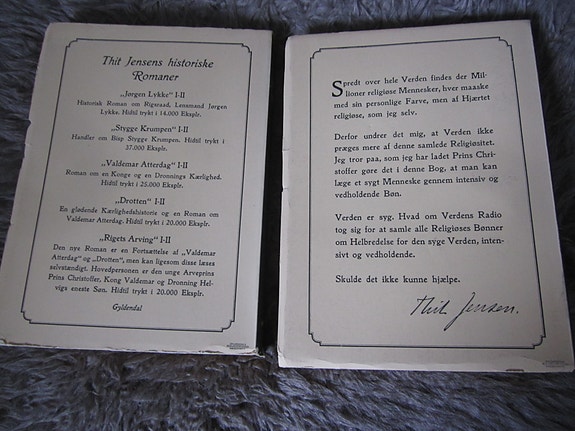 Thit Jensens historiske
Romaner
„Jørgen Lykke" I-II
Historisk Roman om Rigsraad, Lensmand Jørgen
Lykke. Hidtil trykt i 14.000 Eksplr.
„Stygge Krumpen" I-II
Handler om Bisp Stygge Krumpen. Hidtil trykt i
37.000 Eksplr.
„Valdemar Atterdag" I-II
Roman om en Konge og en Dronnings Kærlighed.
Hidtil trykt i 25.000 Eksplr.
„Drotten" I-II
En glødende Kærlighedshistorie og en Roman om
Valdemar Atterdag. Hidtil trykt i 20.000 Eksplr.
„Rigets Arving" I-II
Den nye Roman er en Fortsættelse af „Valdemar
Atterdag" og „Drotten", men kan ligesom disse læses
selvstændigt. Hovedpersonen er den unge Arveprins
Prins Christoffer, Kong Valdemar og Dronning Hel-
vigs eneste Søn. Hidtil trykt i 20.000 Eksplr.
Gyldendal
Spredt over hele Verden findes der Mil-
lioner religiøse Mennesker, hver maaske
med sin personlige Farve, men af Hjærtet
religiøse, som jeg selv.
Derfor undrer det mig, at Verden ikke
præges mere af denne samlede Religiøsitet.
Jeg tror paa, som jeg har ladet Prins Chri-
stoffer gøre det i denne Bog, at man kan
læge et sygt Menneske gennem intensiv og
vedholdende Bøn.
Verden er syg. Hvad om Verdens Radio
tog sig for at samle alle Religiøses Bønner
om Helbredelse for den syge Verden, inten-
sivt og vedholdende.
Skulde det ikke kunne hjælpe.
Thit Jensen.